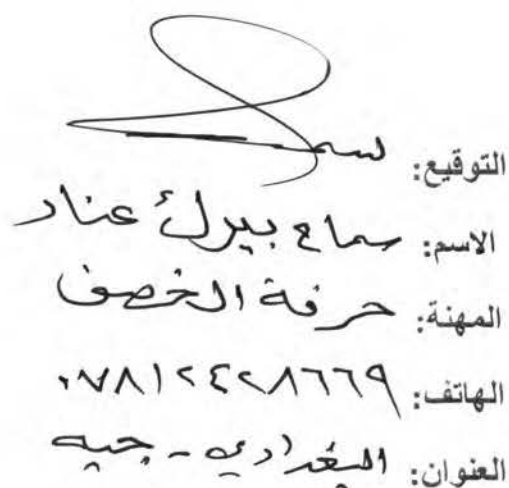 التوقيع:
الاسم: سماح بيرك عناد
المهنة: حرفة الخصف
الهاتف: ٠٧٨١٢٤٢٨٦٦٩
العنوان: البغدادي - جبه